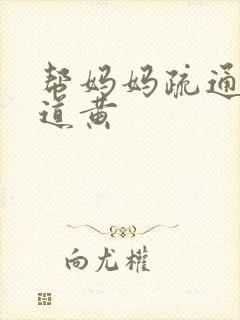 帮妈妈疏通
道黄
向尤權